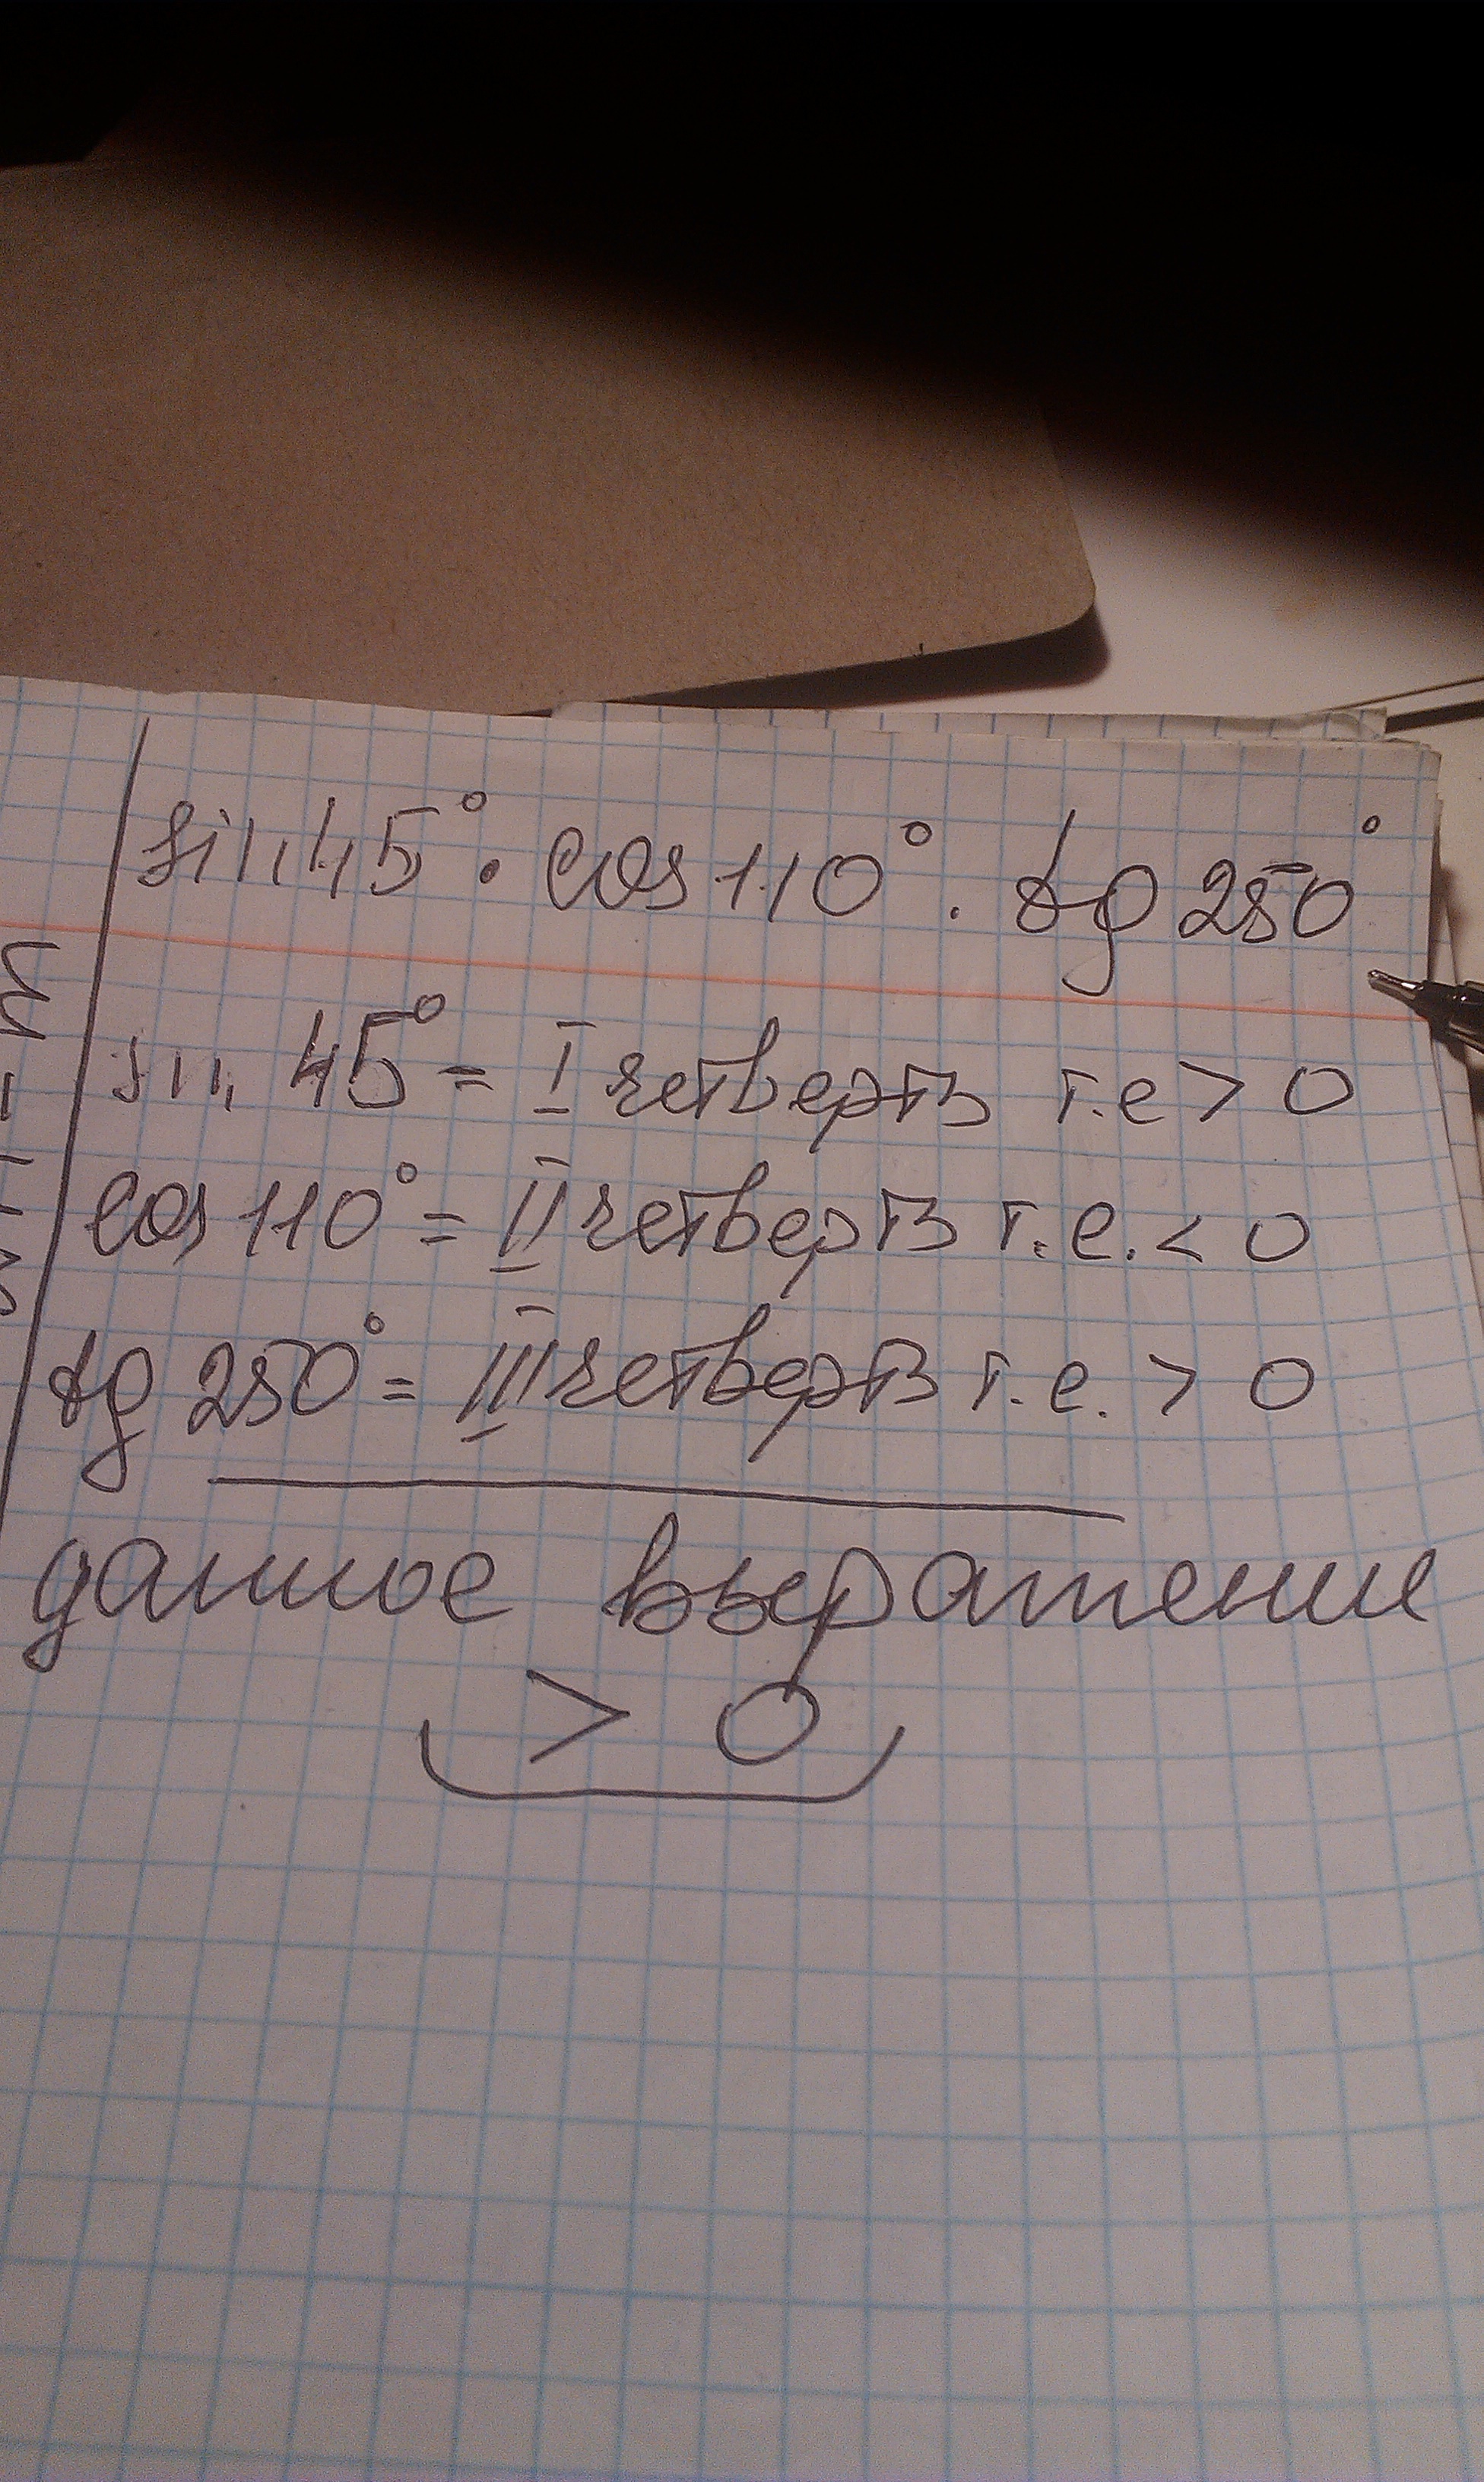 sin 45° · cos 110° · tg 250°
sin 45° = I четверть т.е > 0
cos 110° = II четверть т.е. < 0
tg 250° = III четверть т.е. > 0
данное выражение
> 0